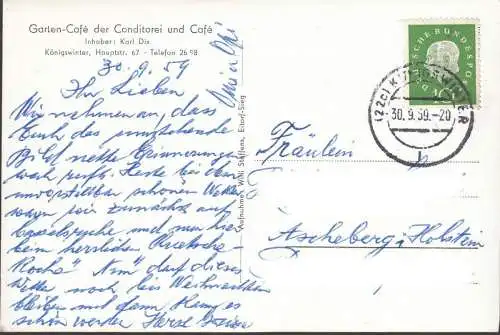 Garten-Café der Conditorei und Café
Inhaber: Karl Dix
Königswinter, Hauptstr. 67 - Telefon 26 98
30.9.59
Ihr Lieben
Wir nehmen an, dass
Euch das umstehende
Bild nette Erinnerungen
wach ruft. Heute bei dem
unvorstellbar schönen Wetter
waren wir zunächst auf
und zum
beim herrlichen
"Nun" darf dieses
Wetter noch bis Weihnachten
bleiben und dann kann es
schön werden
Aufnahme: Willi Steffens, Estorf-Steig
DEUTSCHE BUNDESPOST
10
(22c) KÖNIGSWINTER
30.9.59.-20
b
Fräulein
Ascheberg i. Holstein